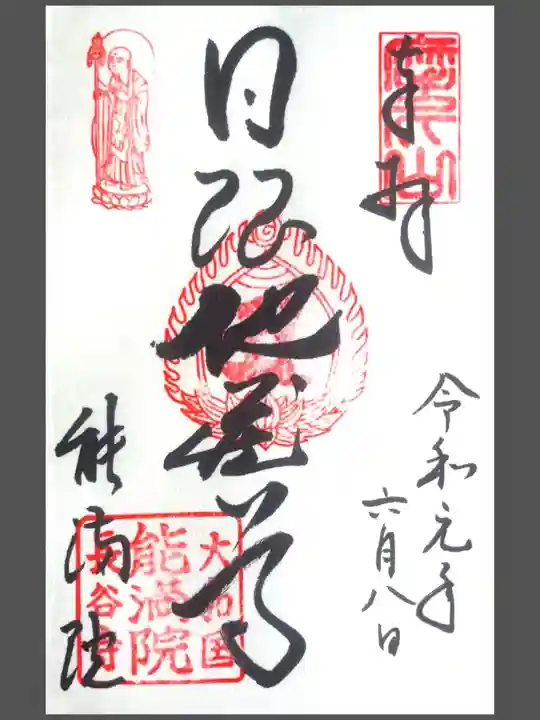 奉拝
令和元年
六月八日
日限地蔵尊
能満院
大和国
能満院
長谷寺